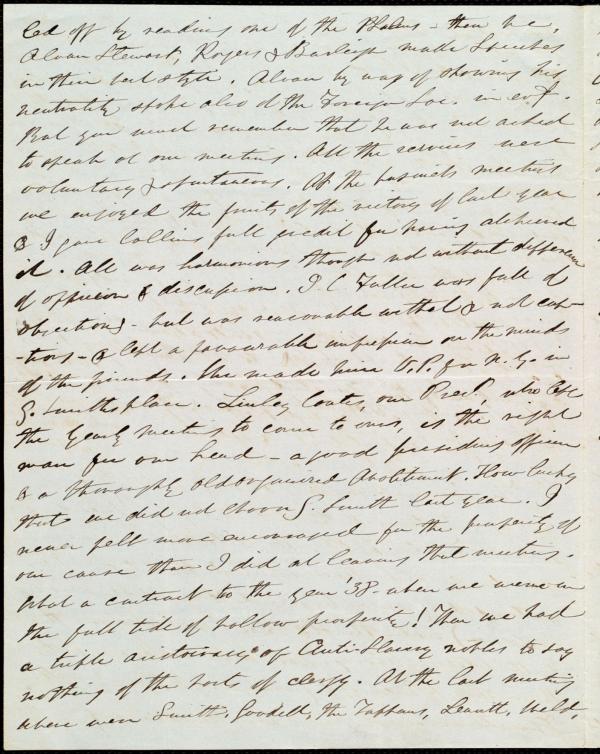 led off by reading one of the Psalms - then we,
Alvan Stewart, Rogers & Burleigh made speeches
in their best style. Alvan by way of showing his
neutrality spoke also at the Foreign Soc. in
But you must remember that he was not asked
to speak at our meeting. All the services were
voluntary & spontaneous. At the business meeting
we enjoyed the fruits of the victory of last year
& I gave Collins full credit for having achieved
it. All was harmonious though not without difference
of opinion & discussion. J. C. Fuller was full of
objections - but was reasonable withal & not cap-
-tious - & left a favourable impression on the minds
of the friends. We made him V. P. for N. Y. in
G. Smith's place. Lindley Coate, our Pred., who left
the Yearly meeting to come to ours, is the right
man for our head - a good presiding officer
& a thoroughly old organized Abolitionist. How lucky
that we did not choose G. Smith last year. I
never felt more encouraged for the prosperity of
our cause than I did at leaving that meeting.
What a contrast to the year '38 - when we were in
the full tide of hollow prosperity! Then we had
a triple aristocracy of Anti-Slavery nobles to say
nothing of the hosts of clergy. At the last meeting
where were Smith, Goodell, the Tappans, Leavitt, Weld,